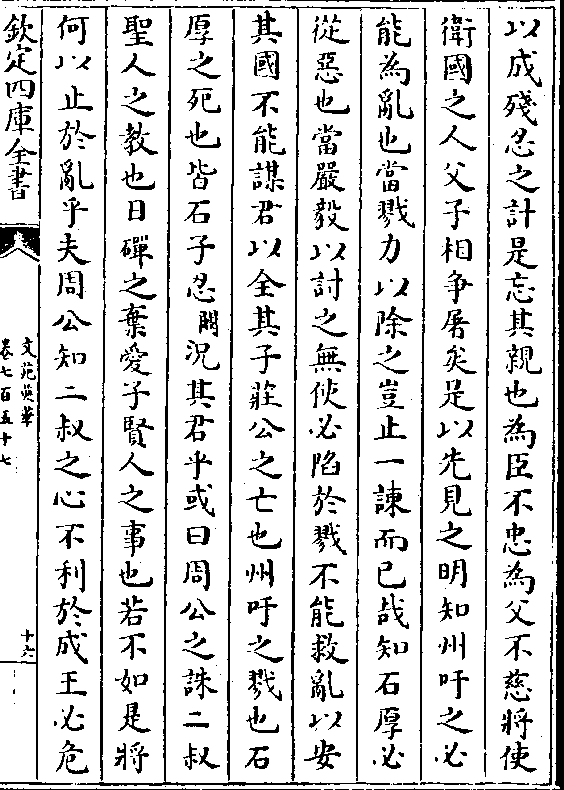 以成殘忍之計是忘其親也為臣不忠為父不慈將使
衛國之人父子相爭屠矣足以先見之明知州吁之必
能為亂也當戮力以除之豈止一諫而已哉知石厚必
從惡也當嚴毅以討之無使必陷於戮不能救亂以安
其國不能謀君以全其子莊公之亡也州吁之戮也石
厚之死也皆石子忍闕況其君乎或曰周公之誅二叔
聖人之教也日磾之棄愛子賢人之事也若不如是將
何以止於亂乎夫周公知二叔之心不利於成王必危
欽定四庫全書
文苑英華
卷七百五十七
十六